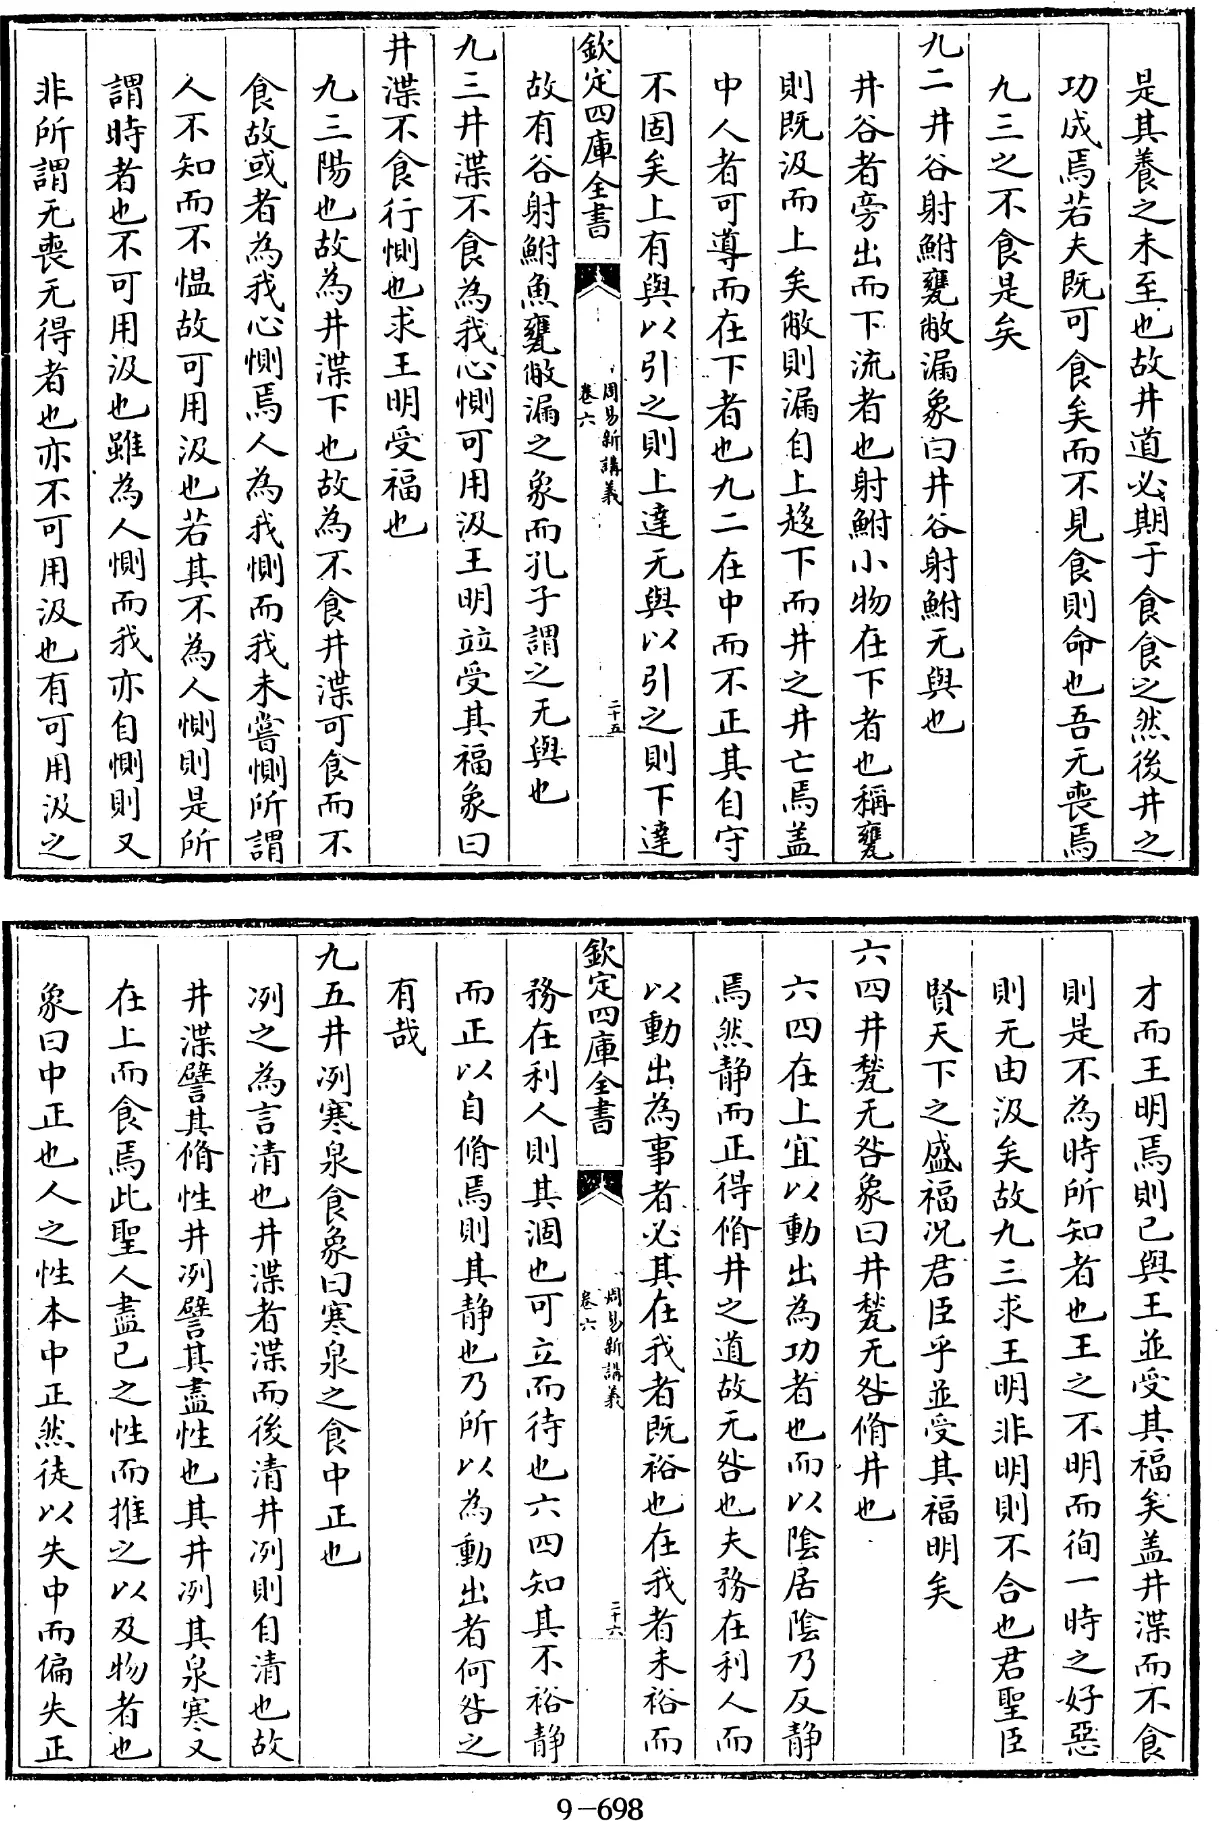 是其養之未至也故井道必期于食食之然後井之
功成焉若夫既可食矣而不見食則命也吾无喪焉
九三之不食是矣
九二井谷射鮒甕敝漏象曰井谷射鮒无與也
井谷者旁出而下流者也射鮒小物在下者也稱甕
則既汲而上矣敝則漏自上趍下而井之井亡焉盖
中人者可導而在下者也九二在中而不正其自守
不固矣上有與以引之則上達无與以引之則下達
欽定四庫全書
周易新講義
卷六
二十五
故有谷射鮒魚甕敝漏之象而孔子謂之无與也
九三井渫不食為我心惻可用汲王明竝受其福象曰
井渫不食行惻也求王明受福也
九三陽也故為井渫下也故為不食井渫可食而不
食故或者為我心惻焉人為我惻而我未嘗惻所謂
人不知而不愠故可用汲也若其不為人惻則是所
謂時者也不可用汲也雖為人惻而我亦自惻則又
非所謂无喪无得者也亦不可用汲也有可用汲之
才而王明焉則已與王並受其福矣盖井渫而不食
則是不為時所知者也王之不明而徇一時之好惡
則无由汲矣故九三求王明非明則不合也君聖臣
賢天下之盛福况君臣乎並受其福明矣
六四井甃无咎象曰井甃无咎脩井也
六四在上宜以動出為功者也而以陰居陰乃反静
焉然静而正得脩井之道故无咎也夫務在利人而
以動出為事者必其在我者既裕也在我者未裕而
欽定四庫全書
周易新講義
卷六
二十六
務在利人則其涸也可立而待也六四知其不裕静
而正以自脩焉則其静也乃所以為動出者何咎之
有哉
九五井冽寒泉食象曰寒泉之食中正也
冽之為言清也井渫者渫而後清井冽則自清也故
井渫譬其脩性井冽譬其盡性也其井冽其泉寒又
在上而食焉此聖人盡已之性而推之以及物者也
象曰中正也人之性本中正然徒以失中而偏失正
9-698